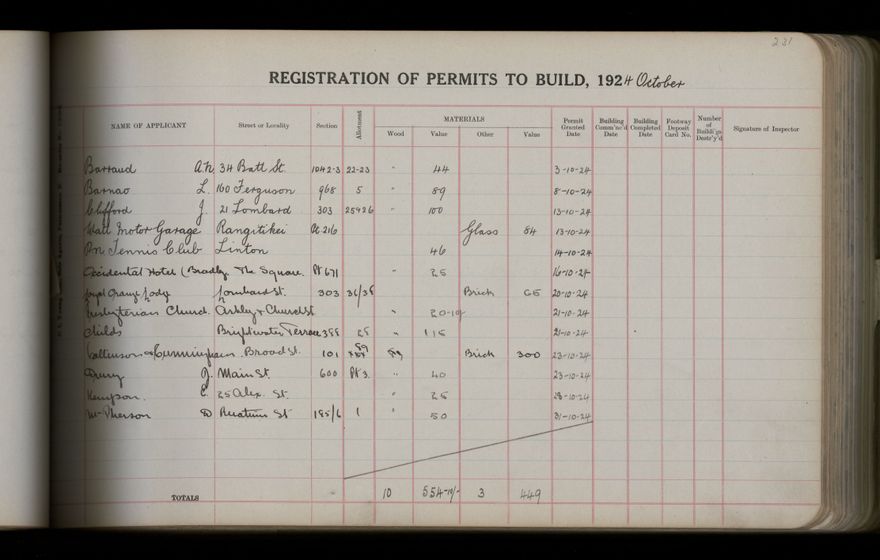 231
REGISTRATION OF PERMITS TO BUILD, 1924 October
NAME OF APPLICANT Street or Locality Section Allotment MATERIALS Wood Value Other Value Permit Granted Date Building Comm'nc'd Date Building Completed Date Footway Deposit Card No. Number of Buildi'gs Destr'y'd Signature of Inspector
Barraud A.N. 34 Batt St. 1042-3 22-23 " 44 3-10-24
Barnao L. 160 Ferguson 968 5 " 89 8-10-24
Clifford J. 21 Lombard 303 25&26 " 100 13-10-24
Motor Garage Rangitikei Pt 216 Glass 84 13-10-24
Pn Tennis Club Linton 46 14-10-24
Occidental Hotel (Bradly The Square. Pt 671 " 25 16-10-24
Loyal Orange Lodge Lombard St. 303 36/38 Brick 65 20-10-24
Presbyterian Church. Ashley & Church St " 20-10/- 21-10-24
Childs Brightwater Terrace 388 25 " 115 21-10-24
Collinson & Cunninghame. Broad St. 101 89 Brick 300 23-10-24
Drury J. Main St. 600 Pt 3. " 40 23-10-24
Kempson. E. 25 Alex. St. " 25 28-10-24
McPherson D Ruahine St 185/6 1 " 50 31-10-24
TOTALS 10 554-10/- 3 449